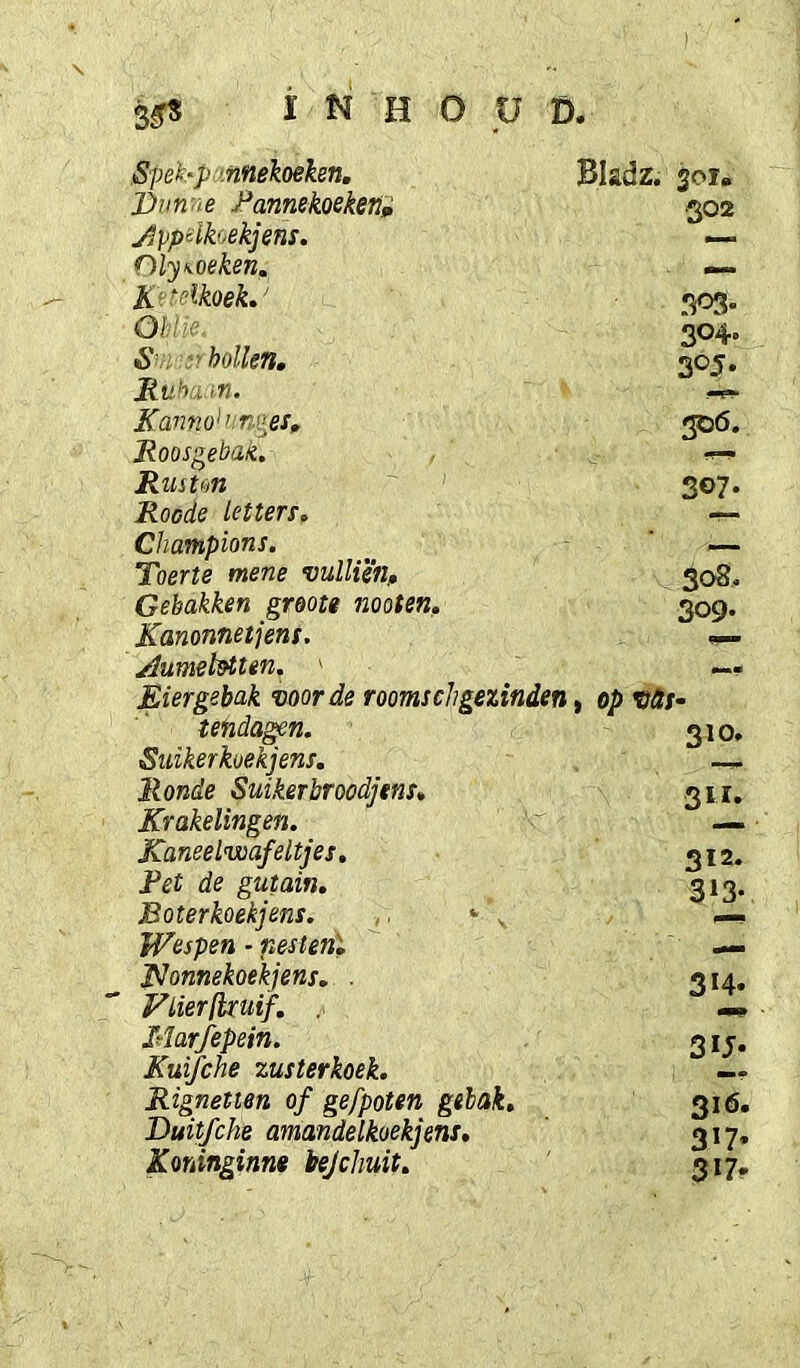 INHOUD.
Spek-pannekoeken. Bladz. 301.
Dunne Pannekoeken. 302
Appelkoekjens. —
Olykoeken. —
Ketelkoek. 303.
Oblie. 304.
bollen. 305.
Rubaan. —
306.
Roosgebak. —
Ruston 307.
Roode letters. —
Champions. —
Toerte mene vulliën. 308.
Gebakken groote nooten. 309.
Kanonnetjens. —
—
Eiergebak voor de roomschgezinden, op vas-
tendagen. 310.
Suikerkoekjens. —
Ronde Suikerbroodjens. 311.
Krakelingen. —
Kaneelwafeltjes. 312.
Pet de gutain. 313.
Boterkoekjens. —
Wespen-nesten. —
Nonnekoekjens. 314.
Vlierſtruif. —
Marſepein. 315.
Kuiſche zusterkoek. —
Rignetten of geſpoten gebak. 316.
Duitſche amandelkoekjens. 317.
Koninginne beſchuit. 317.